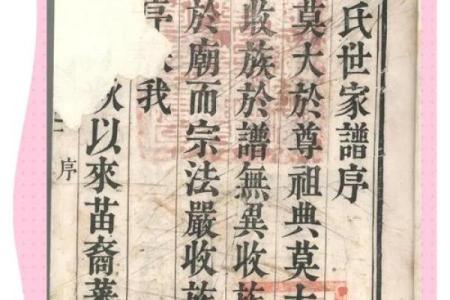 氏世家譜序
莫大於尊祖典莫大
收族於譜無異收族
於廟而宗法嚴收族
序 我
以來苗裔蕃
序